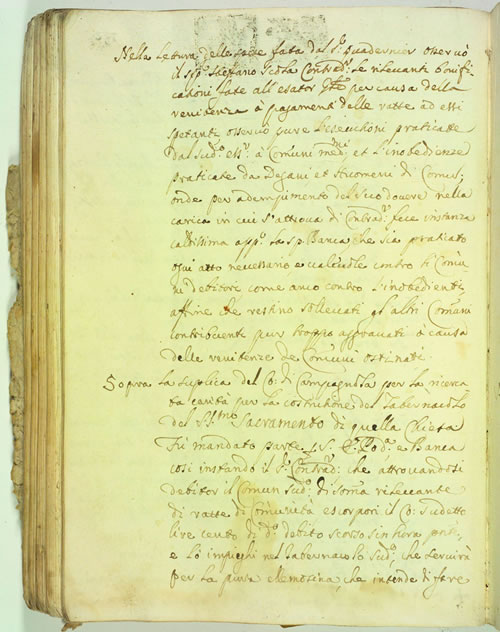 Nella lettura delle sate fata dal S.r quadernier osservò
il Sp. Stefano Isola Contrad.r le rilevanti bonifi
cationi fate all'esator per causa della
renitenza à pagamenti delle ratte ad essi
spetante osservò pure l'esecutioni praticatte
dal sud.o ess.r à Comuni med.mi et l'inobedienze
praticate da Degani et sticomeri di Comun;
onde per adempimento del suo dovere nella
carica in cui s'attrova di Contrad.r fece instanza
caldissima app.o la sp. Banca che sia praticato
ogni atto necessario e valevole contro li Comu:
ni debitori come anco contro l'inobedienti
affine che restino sollevati gl'altri Comuni
contribuenti pur troppo aggravati à causa
delle renitenze de Comuni ostinati.
Sopra la suplica del C: di Campagnola per la ricerca
ta carità per la costrutione del Tabernacolo
del SS.mo Sacramento di quella Chiesa
Fù mandato parte S. Pod.a e Banca
così instando il S.r Contrad.r che attrovandosi
debitor il Comun sud.o di soma rilevante
di ratte di Comunità escorpori il C: sudetto
lire cento di d.o debito scorso sin hora
e lo impieghi nel Tabernacolo sud.o che servirà
per la pura elemosina, che intende di fare